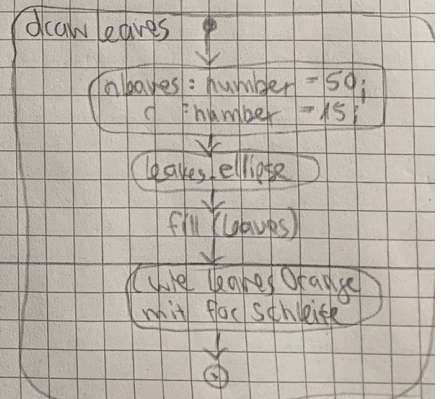 draw leaves
nleaves : number = 50;
d : number = 15;
leaves.ellipse
fill (leaves)
(wie leavesOrange
mit for Schleife